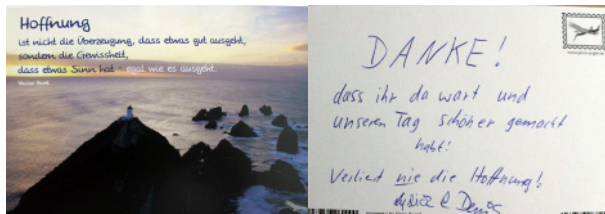 Hoffnung
ist nicht die Überzeugung, dass etwas gut ausgeht,
sondern die Gewissheit,
dass etwas Sinn hat - egal wie es ausgeht.
DANKE!
dass ihr da wart und
unseren Tag schöner gemacht
habt!
Verliert nie die Hoffnung!
&